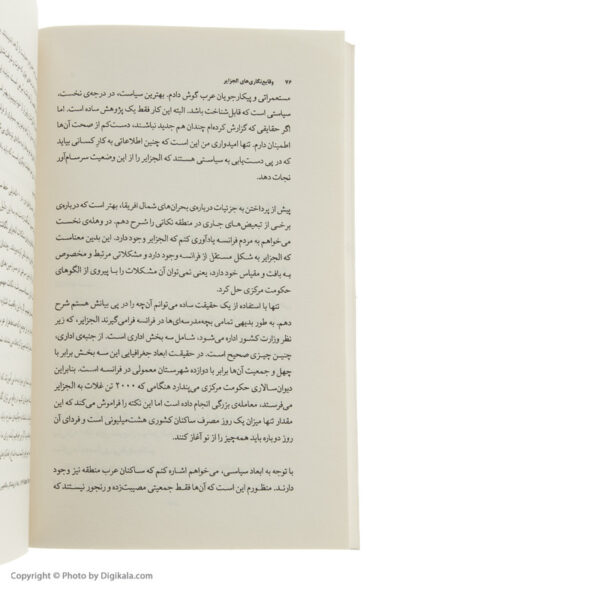 ۷۶ وقایع‌نگاری‌های الجزایر
مستعمراتی و پیکارجویان عرب گوش دادم. بهترین سیاست، در درجه‌ی نخست،
سیاستی است که قابل‌شناخت باشد. البته این کار فقط یک پژوهش ساده است. اما
اگر حقایقی که گزارش کرده‌ام چندان هم جدید نباشند، دست‌کم از صحت آن‌ها
اطمینان دارم. تنها امیدواری من این است که چنین اطلاعاتی به کار کسانی بیاید
که در پی دست‌یابی به سیاستی هستند که الجزایر را از این وضعیت سرسام‌آور
نجات دهد.
پیش از پرداختن به جزئیات درباره‌ی بحران‌های شمال افریقا، بهتر است که درباره‌ی
برخی از تبعیض‌های جاری در منطقه نکاتی را شرح دهم. در وهله‌ی نخست
می‌خواهم به مردم فرانسه یادآوری کنم که الجزایر وجود دارد. این بدین معناست
که الجزایر به شکل مستقل از فرانسه وجود دارد و مشکلاتی مرتبط و مخصوص
به بافت و مقیاس خود دارد، یعنی نمی‌توان آن مشکلات را با پیروی از الگوهای
حکومت مرکزی حل کرد.
تنها با استفاده از یک حقیقت ساده می‌توانم آن‌چه را در پی بیانش هستم شرح
دهم. به طور بدیهی تمامی بچه‌مدرسه‌ای‌ها در فرانسه فرامی‌گیرند الجزایر، که زیر
نظر وزارت کشور اداره می‌شود، شامل سه بخش اداری است. از جنبه‌ی اداری،
چنین چیزی صحیح است. در حقیقت ابعاد جغرافیایی این سه بخش برابر با
چهل و جمعیت آن‌ها برابر با دوازده شهرستان معمولی در فرانسه است. بنابراین
دیوان‌سالاری حکومت مرکزی می‌پندارد هنگامی که ۲۰۰۰ تن غلات به الجزایر
می‌فرستد، معامله‌ی بزرگی انجام داده است اما این نکته را فراموش می‌کند که این
مقدار تنها میزان یک روز مصرف ساکنان کشوری هشت‌میلیونی است و فردای آن
روز دوباره باید همه‌چیز را از نو آغاز کنند.
با توجه به ابعاد سیاسی، می‌خواهم اشاره کنم که ساکنان عرب منطقه نیز وجود
دارند. منظورم این است که آن‌ها فقط جمعیتی مصیبت‌زده و رنجور نیستند که
Copyright © Photo by Digikala.com